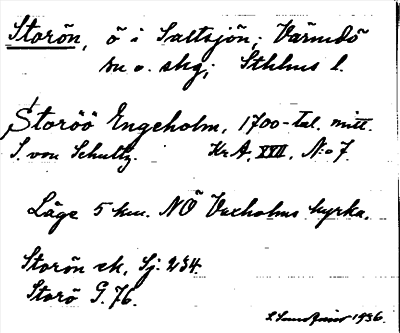 Storön, ö i Saltsjön; Värmdö
sn o. skg; Sthlms l.
Storöö Engeholm, 1700-tal. mitt.
S. von Schultz. Kr A, XXII, N:o 7.
Läge 5 km. NÖ Vaxholms kyrka.
Storön ek, Sj: 234.
Storö G. 76.
1936.